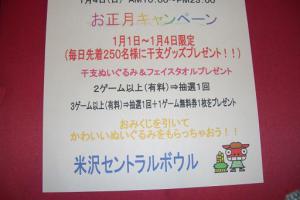 1月4日(日) AM10:00～PM23:00
お正月キャンペーン
1月1日～1月4日限定
(毎日先着250名様に干支グッズプレゼント！！)
干支ぬいぐるみ＆フェイスタオルプレゼント
2ゲーム以上(有料)⇒抽選1回
3ゲーム以上(有料)⇒抽選1回＋1ゲーム無料券1枚をプレゼント
おみくじを引いて
かわいいぬいぐるみをもらっちゃおう！！
米沢セントラルボウル